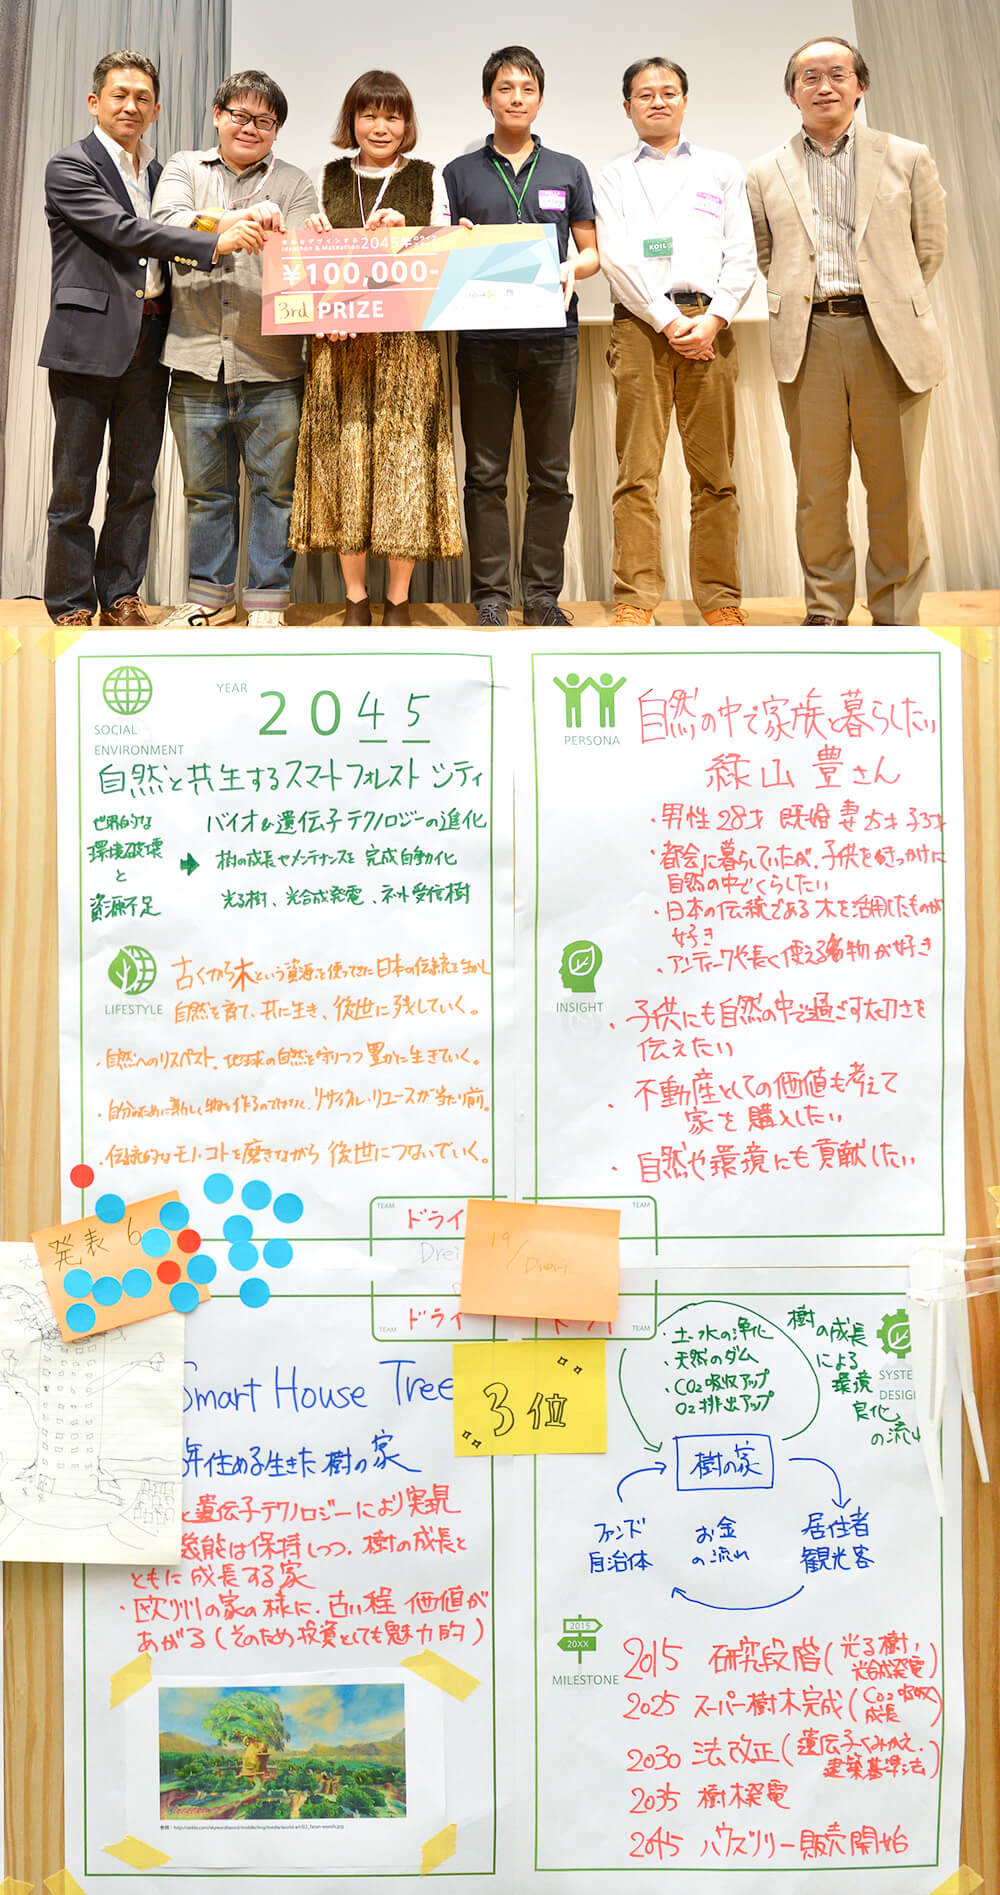 未来をデザインする
Ideathon & Makeathon 2045年
¥100,000-
3rd PRIZE
KOIL
SOCIAL
ENVIRONMENT
YEAR
2045
自然と共生するスマートフォレストシティ
世界的な
環境破壊
と
資源不足
バイオ&遺伝子テクノロジーの進化
樹の成長やメンテナンスを完成自動化
光る樹、光合成発電、ネット受信樹
LIFESTYLE
古くから木という資源を使ってきた日本の伝統を生かし
自然を育て、共に生き、後世に残していく。
・自然へのリスペスト。地球の自然を守りつつ豊かに生きていく。
・自分のために新しく物を作るのではなく、リサイクル・リユースが当たり前。
・伝統的なモノ・コトを磨きながら後世につないでいく。
PERSONA
自然の中で家族と暮らしたい
緑山 豊さん
・男性28才 既婚 妻 25才 子3才
・都会に暮らしていたが、子供をきっかけに
自然の中でくらしたい
・日本の伝統である木を活用したものが
好き
・アンティークや長く使える物が好き
INSIGHT
・子供にも自然の中で過ごす大切さを
伝えたい
・不動産としての価値も考えて
家を購入したい
・自然や環境にも貢献したい
発表 6
TEAM
ドライ
Drei
19/Drei
TEAM
TEAM
ドライ
TEAM
3位
Smart House Tree
年住める生きた樹の家
と遺伝子テクノロジーにより実現
機能は保持しつつ、樹の成長と
ともに成長する家
・欧州の家の様に、古い程 価値が
あがる(そのため投資としても魅力的)
・土、水の浄化
・天然のダム
・CO2吸収アップ
O2排出アップ
樹の成長
による
環境
良化
の流れ
SYSTEM
DESIGN
樹の家
ファンド
自治体
お金
の流れ
居住者
観光客
2015
20XX
MILESTONE
2015 研究段階(光る樹、
光合成発電)
2025 スーパー樹木完成(CO2吸収
成長)
2030 法改正(遺伝子くみかえ、
建築基準法)
2035 樹木発電
2045 ハウスツリー販売開始